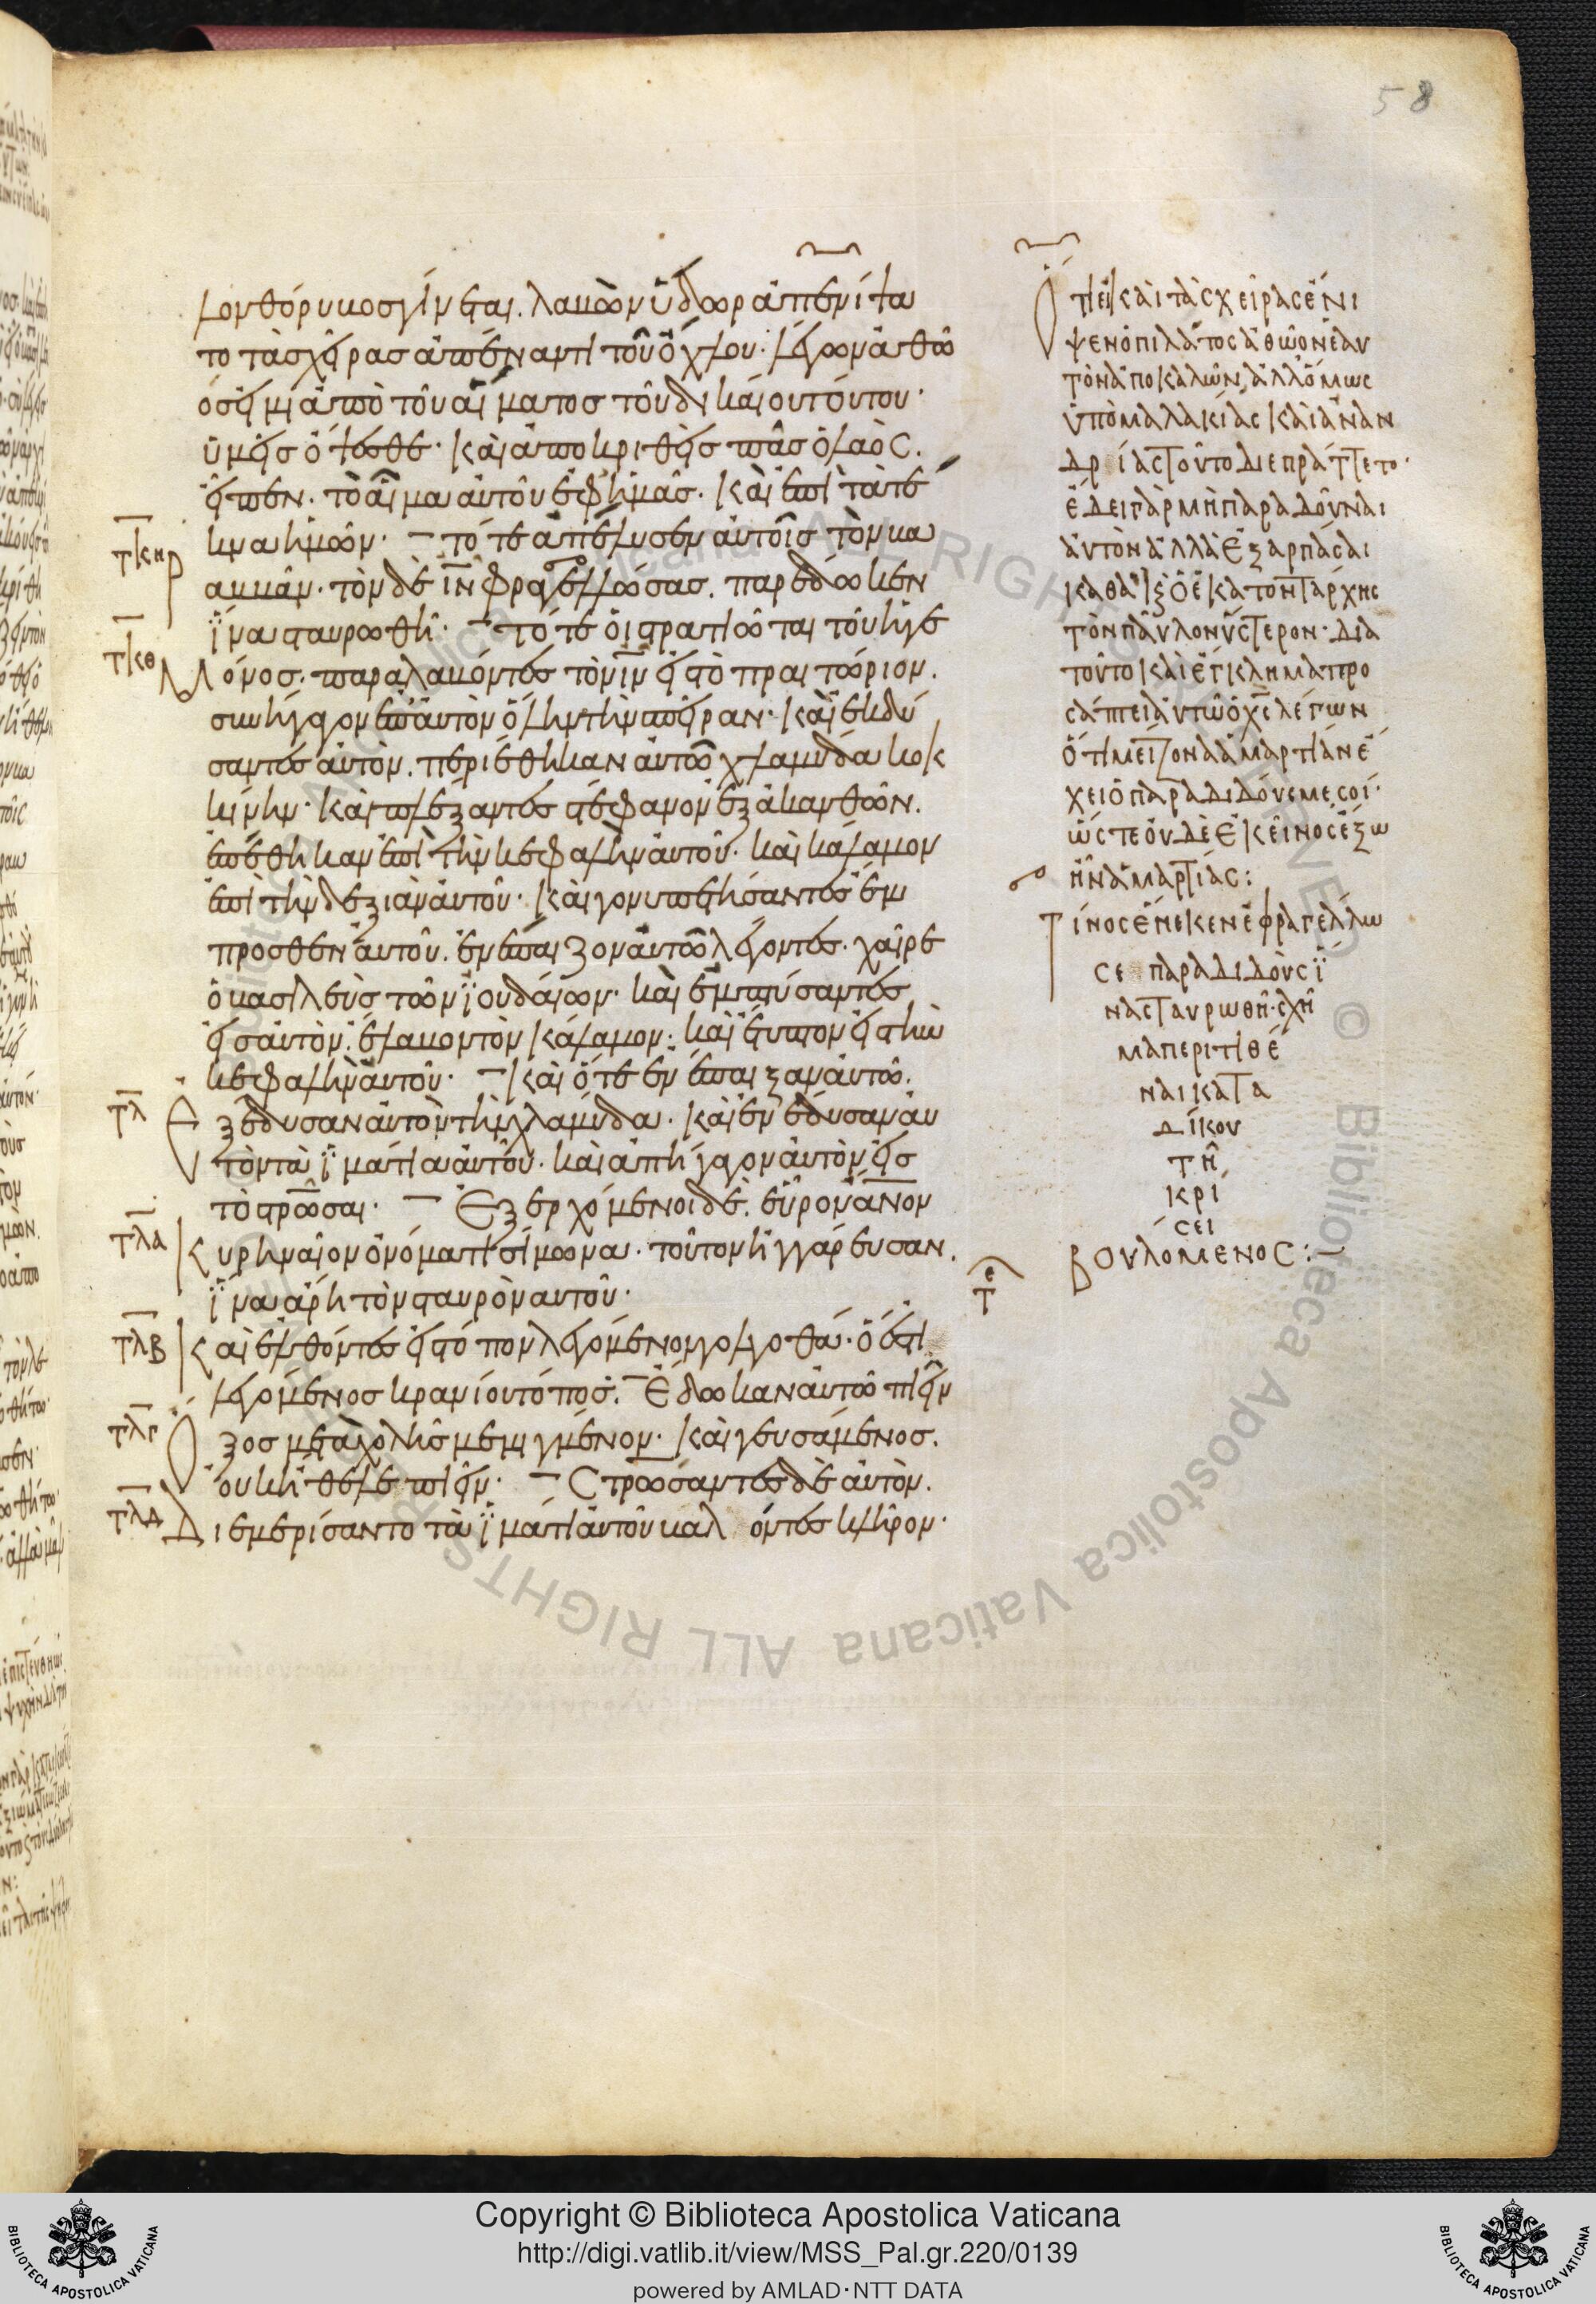 58
λον θόρυβος γίνεται. λαβὼν ὕδωρ ἀπενίψα
το τὰς χεῖρας ἀπέναντι τοῦ ὄχλου· λέγων ἀθῶ
ός εἰμι ἀπὸ τοῦ αἵματος τοῦ δικαίου τούτου·
ὑμεῖς ὄψεσθε· καὶ ἀποκριθεὶς πᾶς ὁ λαὸς.
εἶπεν. τὸ αἷμα αὐτοῦ ἐφ ἡμᾶς. καὶ ἐπὶ τὰ τέ
κνα ἡμῶν· τότε ἀπέλυσεν αὐτοῖς τὸν βα
ραββᾶν· τὸν δὲ ιν φραγελλώσας. παρέδωκεν
ἵνα σταυρωθῆ· τότε οἱ στρατιῶται τοῦ ἡγε
μόνος. παραλαβόντες τὸν ιν εἰς τὸ πραιτώριον.
συνήγαγον ἐπ αὐτὸν ὅλην τὴν σπεῖραν· καὶ ἐκδύ
σαντες αὐτὸν. περιέθηκαν αὐτῶ χλαμύδα κοκ
κίνην· καὶ πλέξαντες στέφανον ἐξ ἀκανθῶν.
ἐπέθηκαν ἐπὶ τὴν κεφαλὴν αὐτοῦ· καὶ κάλαμον
ἐπὶ τὴν δεξιὰν αὐτοῦ· καὶ γονυπετήσαντες ἔμ
προσθεν αὐτοῦ. ἐνέπαιζον αὐτῶ λέγοντες. χαῖρε
ὁ βασιλεὺς τῶν ἰουδαίων· καὶ ἐμπτύσαντες
εἰς αὐτὸν. ἔλαβον τὸν κάλαμον. καὶ ἔτυπτον εἰς τὴν
κεφαλὴν αὐτοῦ· καὶ ὅτε ἐνέπαιξαν αὐτῶ.
ἐξέδυσαν αὐτὸν τὴν χλαμύδα. καὶ ἐνέδυσαν αὐ
τὸν τὰ ἱμάτια αὐτοῦ. καὶ ἀπήγαγον αὐτὸν εἰς
τὸ σταυρῶσαι· Ἐξερχόμενοι δὲ. εὗρον ανον
κυρηναῖον ὀνόματι σίμωνα. τοῦτον ἠγγάρευσαν.
ἵνα ἄρη τὸν σταυρὸν αὐτοῦ·
καὶ ἐλθόντες εἰς τόπον λεγόμενον γολγοθᾶ. ὅ ἐστι
λεγόμενος κρανίου τόπος. Ἔδωκαν αὐτῶ πιεῖν
ὄξος μετὰ χολῆς μεμιγμένον· καὶ γευσάμενος.
οὐκ ἤθελε πιεῖν· Σταυρώσαντες δὲ αὐτὸν.
διεμερίσαντο τὰ ἱμάτια αὐτοῦ βαλόντες κλῆρον·
τκη
τκθ
τλ
τλα
τλβ
τλγ
τλδ
Ὅτι εἰ καὶ τὰς χεῖρας ἔνι
ψεν ὁ πιλάτος ἀθῶον ἑαυ
τὸν ἀποκαλῶν, ἀλλ ὅμως
ὑπὸ μαλακίας καὶ ἀναν
δρίας τοῦτο διεπράττετο·
ἔδει γὰρ μὴ παραδοῦναι
αὐτὸν ἀλλὰ ἐξαρπάσαι
καθὰ ὁ ἑκατοντάρχης
τὸν παῦλον ὕστερον· διὰ
τοῦτο καὶ ἔγκλημα προ
σάπτει αὐτῶ ὁ χς λέγων
ὅτι μείζονα ἁμαρτίαν ἔ
χει ὁ παραδιδούς με σοί·
ὥστε οὐδὲ ἐκεῖνος ἔξω
ἦν ἁμαρτίας:
Τίνος ἕνεκεν ἐφραγέλλω
σε παραδιδοὺς ἵ
να σταυρωθῆ· σχῆ
μα περιτιθέ
ναι κατα
δίκου
τῆ
κρί
σει
βουλόμενος:
Copyright © Biblioteca Apostolica Vaticana
http://digi.vatlib.it/view/MSS_Pal.gr.220/0139
powered by AMLAD·NTT DATA